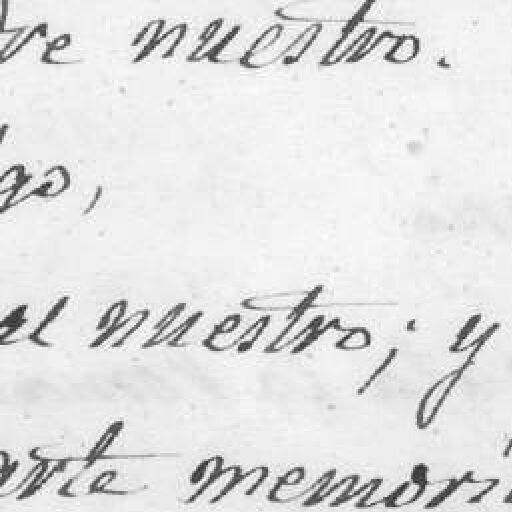 re nuestro.
go,
el nuestro; y
arte memori